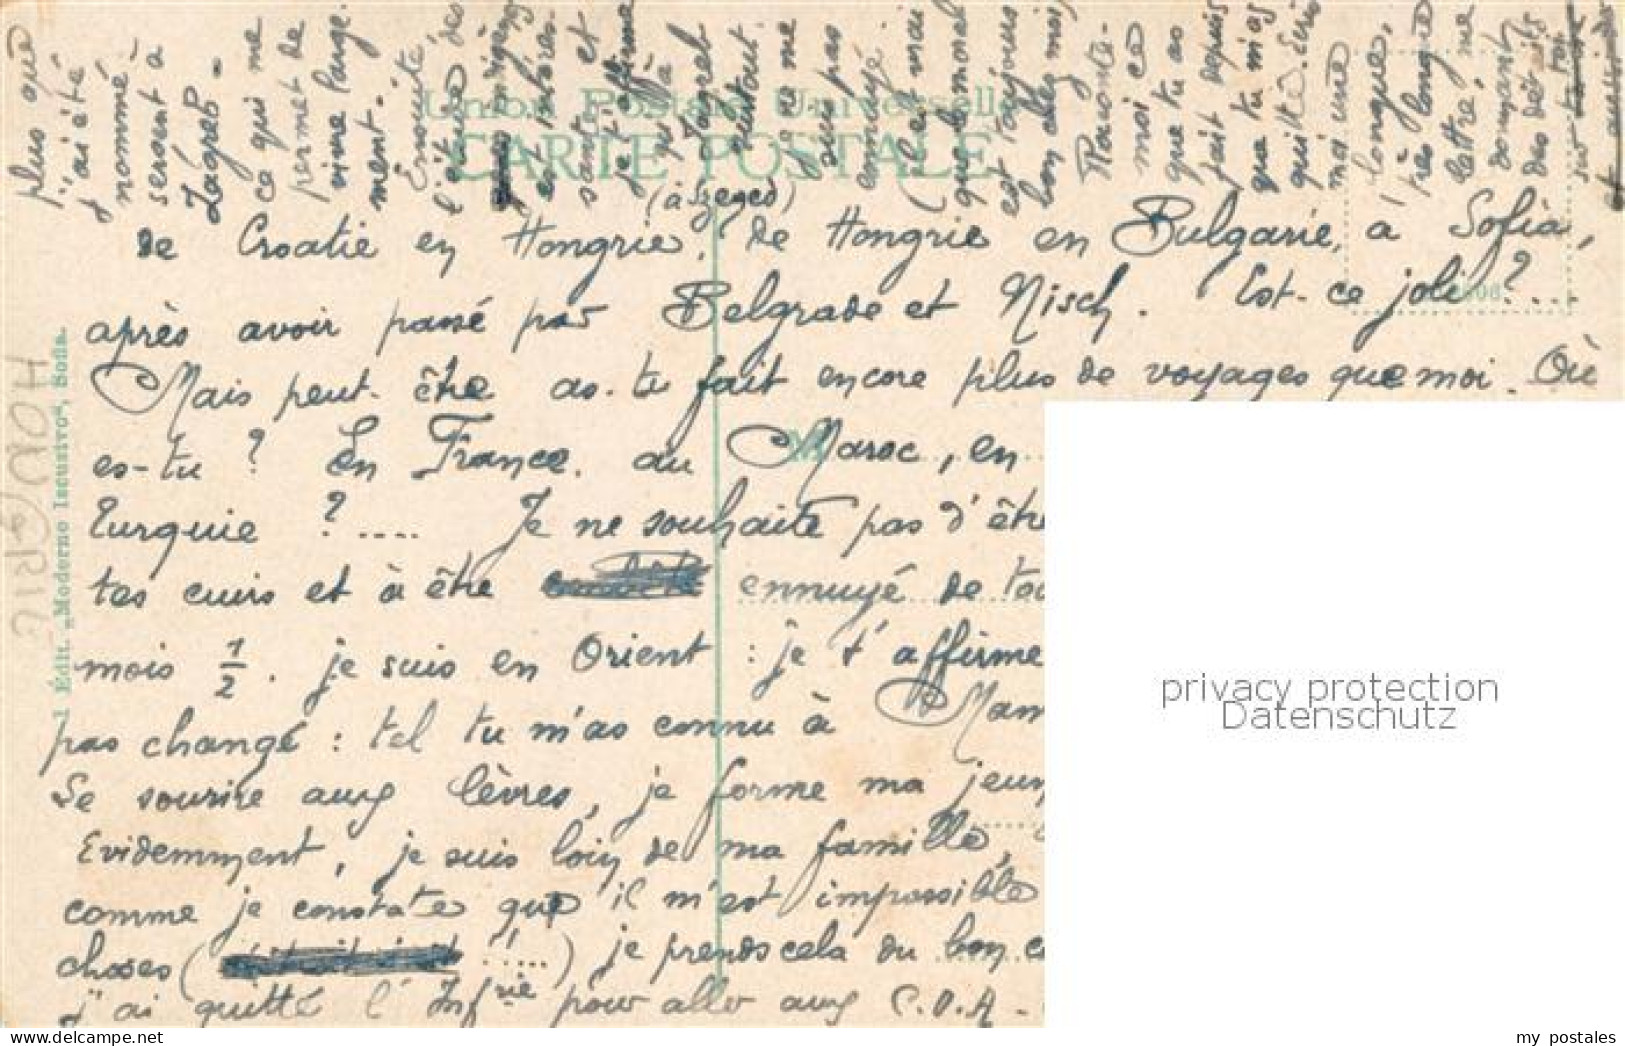 plus que
j'ai été
nommé
sergent à
Zagreb -
ce qui me
permet de
vivre large-
ment.
Ensuite,
l'étude des
indigènes
est intéres-
sante et
je t'affirme
qu'à
Zagreb
surtout
je ne me
suis pas
ennuyé.
(c'est mai
que le moral
est toujours
bon chez moi)
Raconte-
moi ce
que tu as
fait depuis
que tu m'as
quitté. Ecris
moi une
longue,
très longue
lettre, me
donnant
des détails
sur toi
Union Postale Universelle
CARTE POSTALE
(à Szeged)
de Croatie en Hongrie, de Hongrie en Bulgarie, à Sofia,
après avoir passé par Belgrade et Nisch. Est-ce joli ?...
Mais peut-être as-tu fait encore plus de voyages que moi. Où
es-tu ? En France, au Maroc, en
Turquie ?.... Je ne souhaite pas d'être
tes cuirs et à être ennuyé de
mois 1/2. je suis en Orient : je t'affirme
pas changé : tel tu m'as connu à
Le sourire aux lèvres, je forme ma
Evidemment, je suis loin de ma famille,
comme je constate que il m'est impossible
choses ( !...) je prends cela du bon
j'ai quitté l'Infrie pour aller aux C.O.A-
1 Édit. „Moderno Iscustvo", Sofia.
HONGRIE
M
privacy protection
Datenschutz
my postales